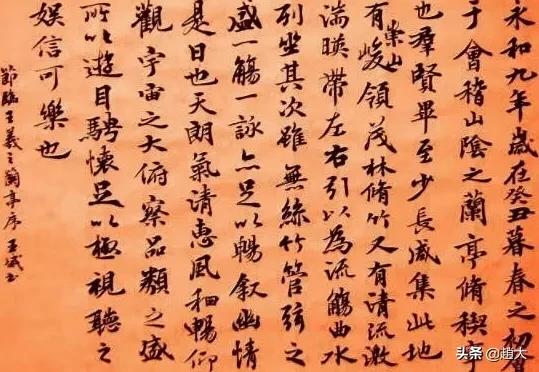 永和九年歲在癸丑暮春之初會
于會稽山陰之蘭亭脩稧事
也羣賢畢至少長咸集此地
有崇山峻領茂林脩竹又有清流激
湍暎帶左右引以為流觴曲水
列坐其次雖無絲竹管弦之
盛一觴一詠亦足以暢敘幽情
是日也天朗氣清惠風和暢仰
觀宇宙之大俯察品類之盛
所以遊目騁懷足以極視聽之
娛信可樂也
節臨王羲之蘭亭序王斌书
头条 @趙大